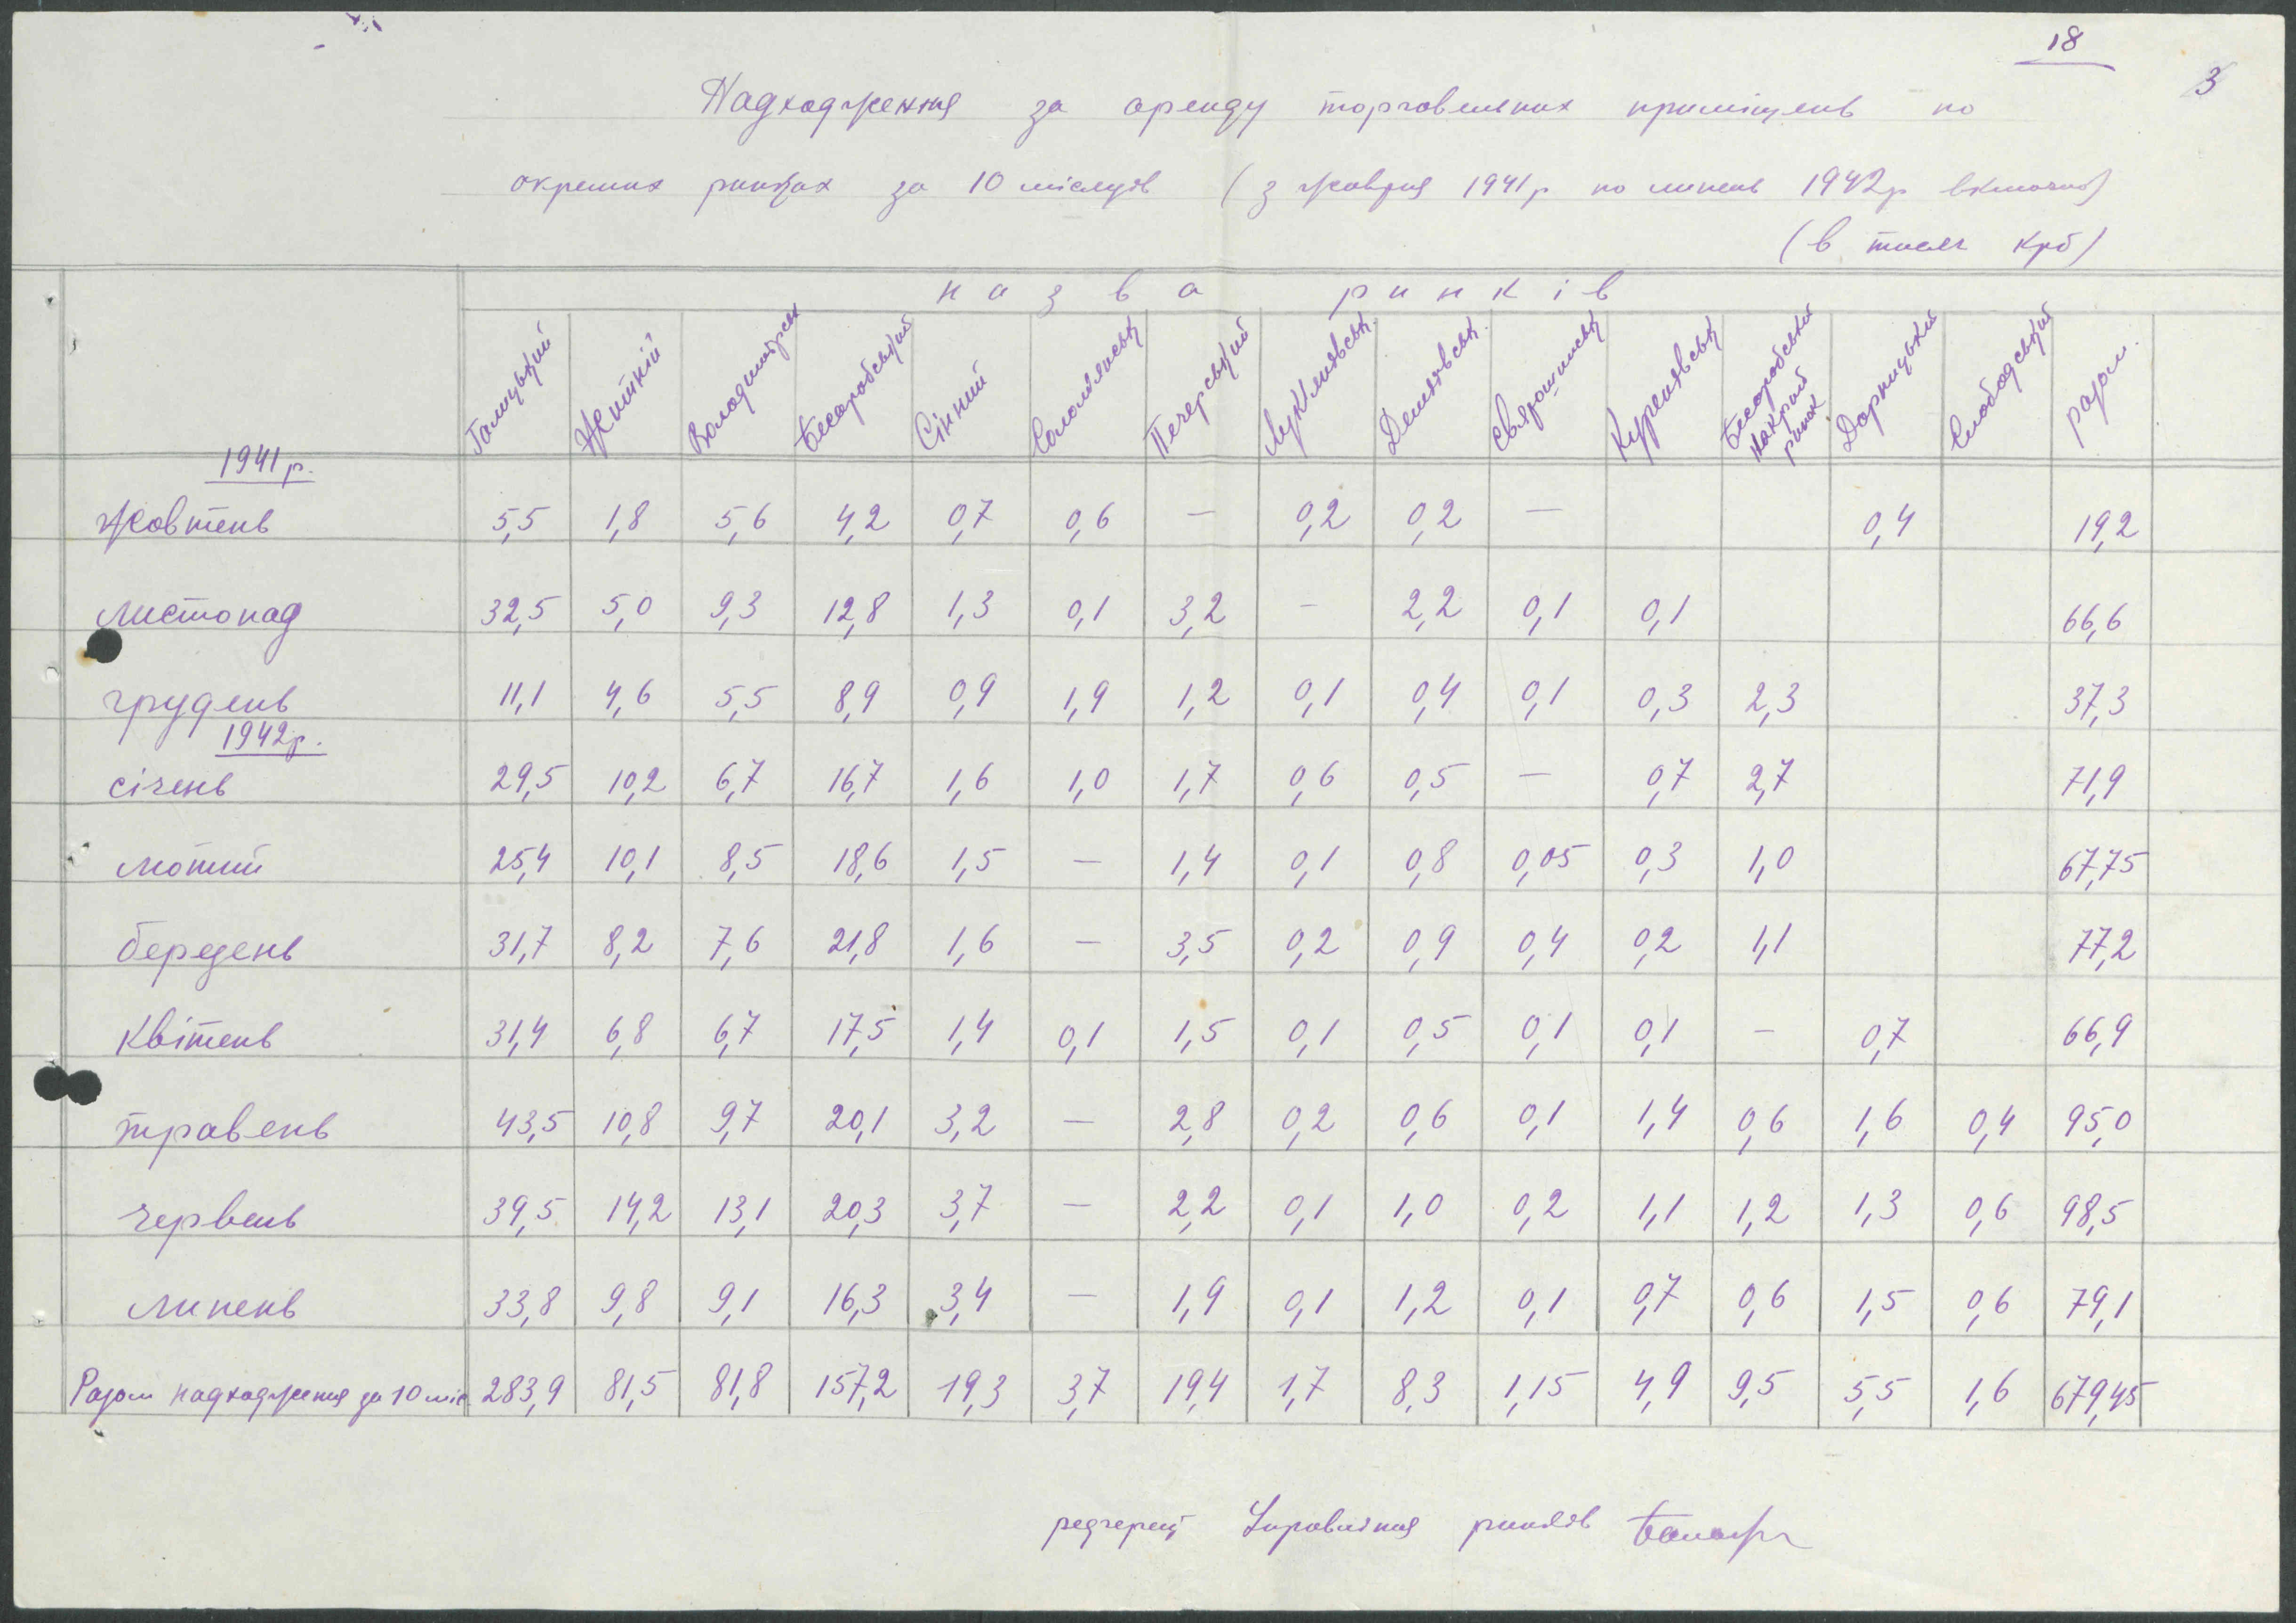 18
3
Надходження за оренду торговельних приміщень по
окремих ринках за 10 місяців (з жовтня 1941р по липень 1942р включно)
(в тисяч крб)
назва ринків
Галицький Житній Володимирськ Бесарабський Сінний Солом'янськ Печерський Лук'янівськ. Деміївськ. Святошинськ Куренівськ Бесарабський накритий ринок Дарницький Слободський разом.
1941 р.
Жовтень 5,5 1,8 5,6 4,2 0,7 0,6 — 0,2 0,2 — 0,4 19,2
листопад 32,5 5,0 9,3 12,8 1,3 0,1 3,2 — 2,2 0,1 0,1 66,6
грудень 11,1 4,6 5,5 8,9 0,9 1,9 1,2 0,1 0,4 0,1 0,3 2,3 37,3
1942р.
січень 29,5 10,2 6,7 16,7 1,6 1,0 1,7 0,6 0,5 — 0,7 2,7 71,9
лютий 25,4 10,1 8,5 18,6 1,5 — 1,4 0,1 0,8 0,05 0,3 1,0 67,75
березень 31,7 8,2 7,6 21,8 1,6 — 3,5 0,2 0,9 0,4 0,2 1,1 77,2
Квітень 31,4 6,8 6,7 17,5 1,4 0,1 1,5 0,1 0,5 0,1 0,1 — 0,7 66,9
травень 43,5 10,8 9,7 20,1 3,2 — 2,8 0,2 0,6 0,1 1,4 0,6 1,6 0,4 95,0
червень 39,5 14,2 13,1 20,3 3,7 — 2,2 0,1 1,0 0,2 1,1 1,2 1,3 0,6 98,5
липень 33,8 9,8 9,1 16,3 3,4 — 1,9 0,1 1,2 0,1 0,7 0,6 1,5 0,6 79,1
Разом надходження за 10 міс. 283,9 81,5 81,8 157,2 19,3 3,7 19,4 1,7 8,3 1,15 4,9 9,5 5,5 1,6 679,45
референт Управління ринків